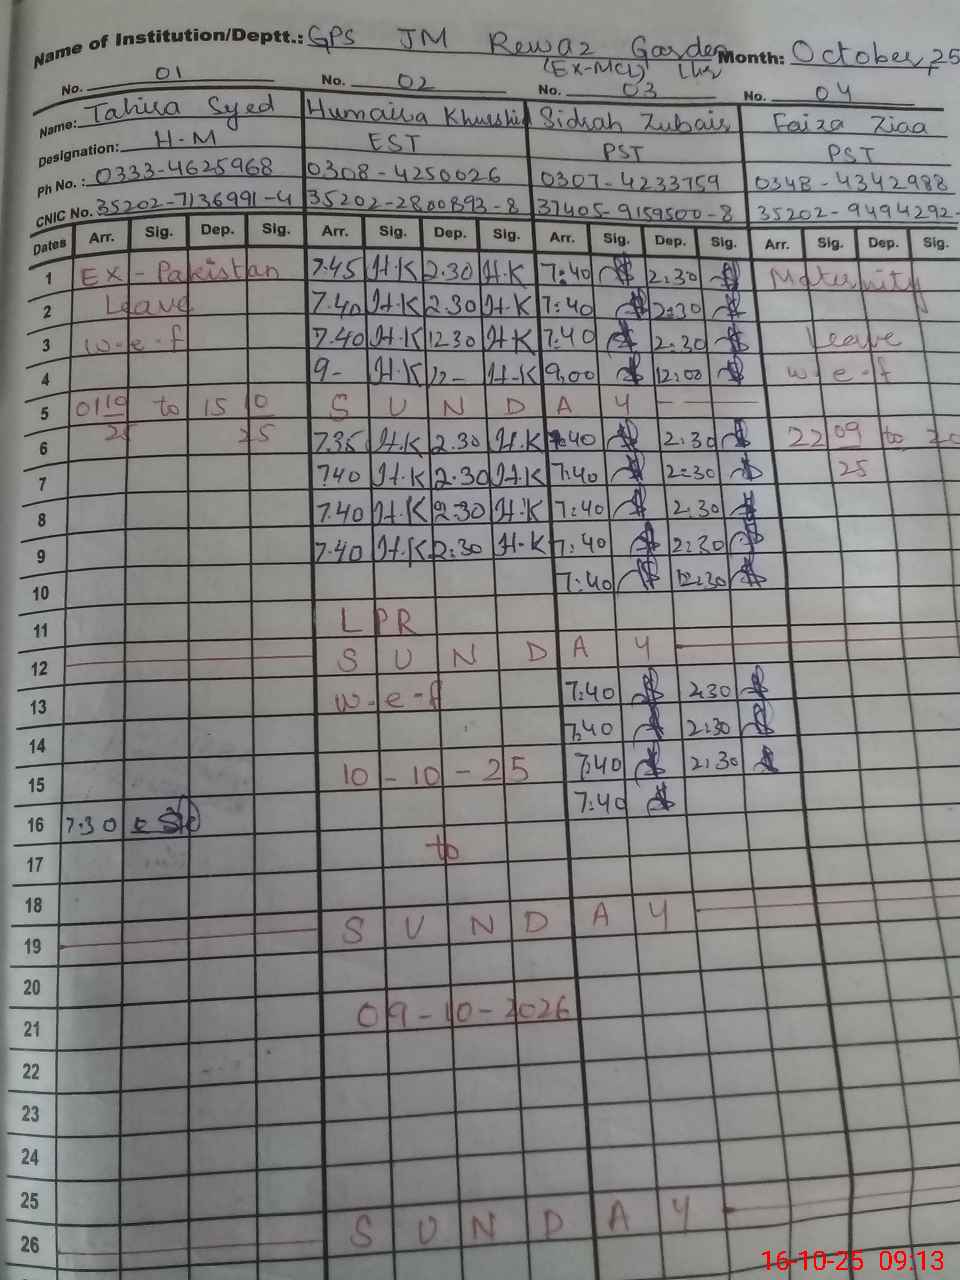 Name of Institution/Deptt.: GPS JM Rewaz Garden Month: October, 25
(Ex-MCL) Lhr
No. 01 No. 02 No. 03 No. 04
Name: Tahira Syed Humaira Khurshid Sidrah Zubair Faiza Ziaa
Designation: H-M EST PST PST
Ph No. : 0333-4625968 0308-4250026 0307-4233759 0348-4342988
CNIC No. 35202-7136991-4 35202-2800893-8 37405-9159500-8 35202-9494292-
Dates Arr. Sig. Dep. Sig. Arr. Sig. Dep. Sig. Arr. Sig. Dep. Sig. Arr. Sig. Dep. Sig.
1 EX-Pakistan 7.45 H.K 2.30 H.K 7:40 2:30 Maternity
2 Leave 7.40 H.K 2.30 H.K 7:40 2:30
3 w-e-f 7.40 H.K 12.30 H.K 7:40 2:30 Leave
4 9- H.K 12- H.K 9.00 12:00 w-e-f
5 01 to 15 10 S U N D A Y
25 25
6 7.35 H.K 2.30 H.K 7:40 2:30 22 09 to 20
25
7 7.40 H.K 2.30 H.K 7:40 2:30
8 7.40 H.K 2.30 H.K 7:40 2:30
9 7.40 H.K 2:30 H.K 7:40 2:30
10 7:40 12:30
11 LPR
12 S U N D A Y
13 w-e-f 7:40 2:30
14 7:40 2:30
15 10-10-25 7:40 2:30
16 7.30 7:40
17 to
18
19 S U N D A Y
20
21 09-10-2026
22
23
24
25
26 S U N D A Y
16-10-25 09:13